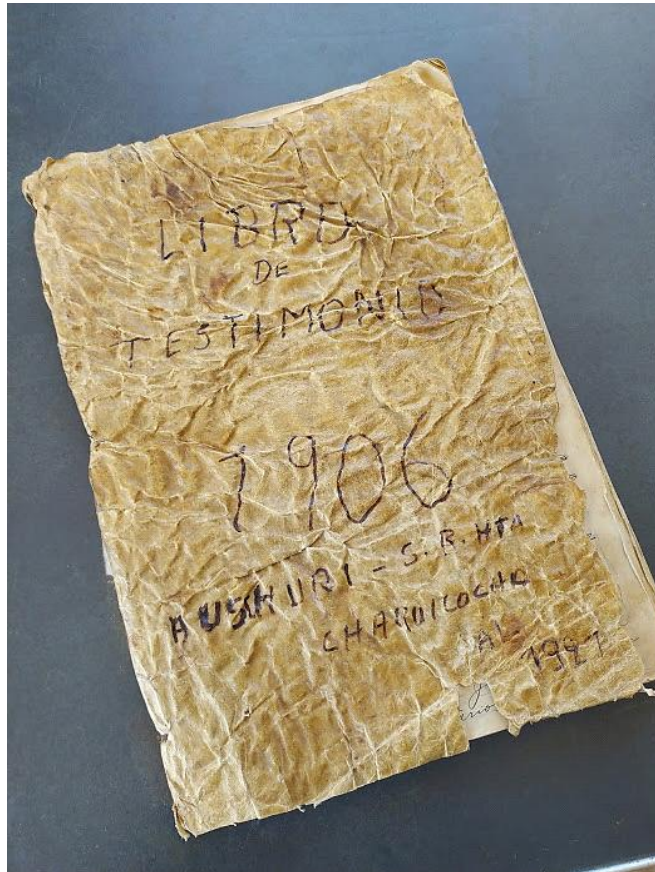 LIBRO
DE
TESTIMONIO
1906
AUSHURI - S. B. HTA
CHARDICOCHA
AL